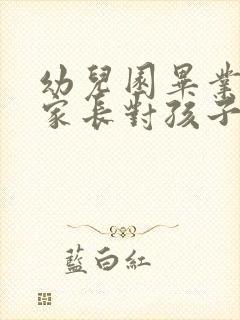 幼兒園畢業
家長對孩子
藍白紅